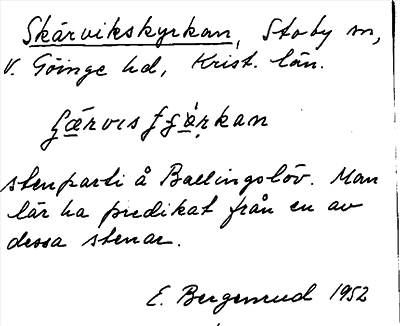 Skärvikskyrkan, Stoby sn,
V. Göinge hd, Krist. län.
stenparti å Ballingslöv. Man
lär ha predikat från en av
dessa stenar.
E. Bergenrud 1952